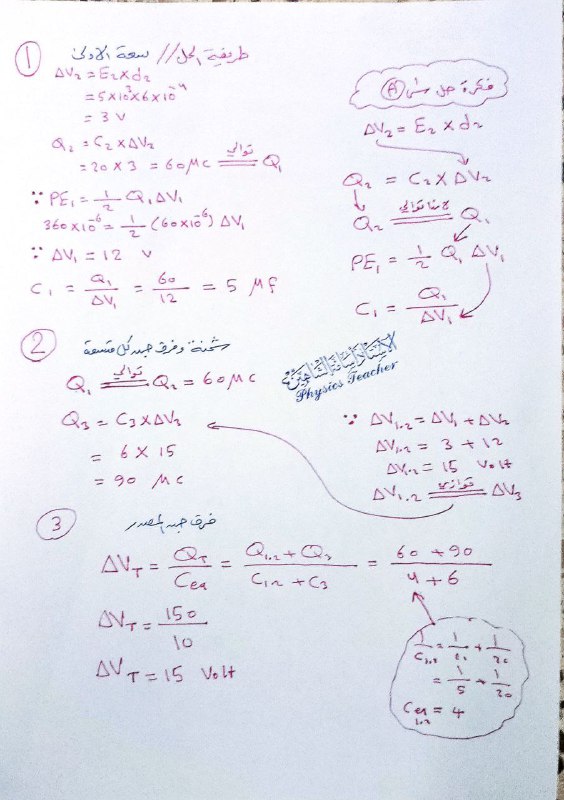 ① طريقة الحل // سعة الاولى
ΔV₂ = E₂ × d₂
= 5×10³×6×10⁻⁴
= 3 V
Q₂ = C₂ × ΔV₂
= 20 × 3 = 60 μC توالي Q₁
∵ PE₁ = 1/2 Q₁ ΔV₁
360×10⁻⁶ = 1/2 (60×10⁻⁶) ΔV₁
∵ ΔV₁ = 12 V
C₁ = Q₁/ΔV₁ = 60/12 = 5 μf
فكرة حل A
ΔV₂ = E₂ × d₂
Q₂ = C₂ × ΔV₂
Q₂ توالي Q₁
PE₁ = 1/2 Q₁ ΔV₁
C₁ = Q₁/ΔV₁
② شحنة وفرق جهد كل متسعة
Q₁ توالي Q₂ = 60 μC
Q₃ = C₃ × ΔV₃
= 6 × 15
= 90 μC
Physics Teacher
∵ ΔV₁.₂ = ΔV₁ + ΔV₂
ΔV₁.₂ = 3 + 12
ΔV₁.₂ = 15 Volt
ΔV₁.₂ توازي ΔV₃
③ فرق جهد المصدر
ΔV_T = Q_T/C_eq = Q₁.₂+Q₃/C₁.₂+C₃ = 60+90/4+6
ΔV_T = 150/10
ΔV_T = 15 Volt
1/C₁.₂ = 1/C₁ + 1/20
= 1/5 + 1/20
C_eq 1.2 = 4